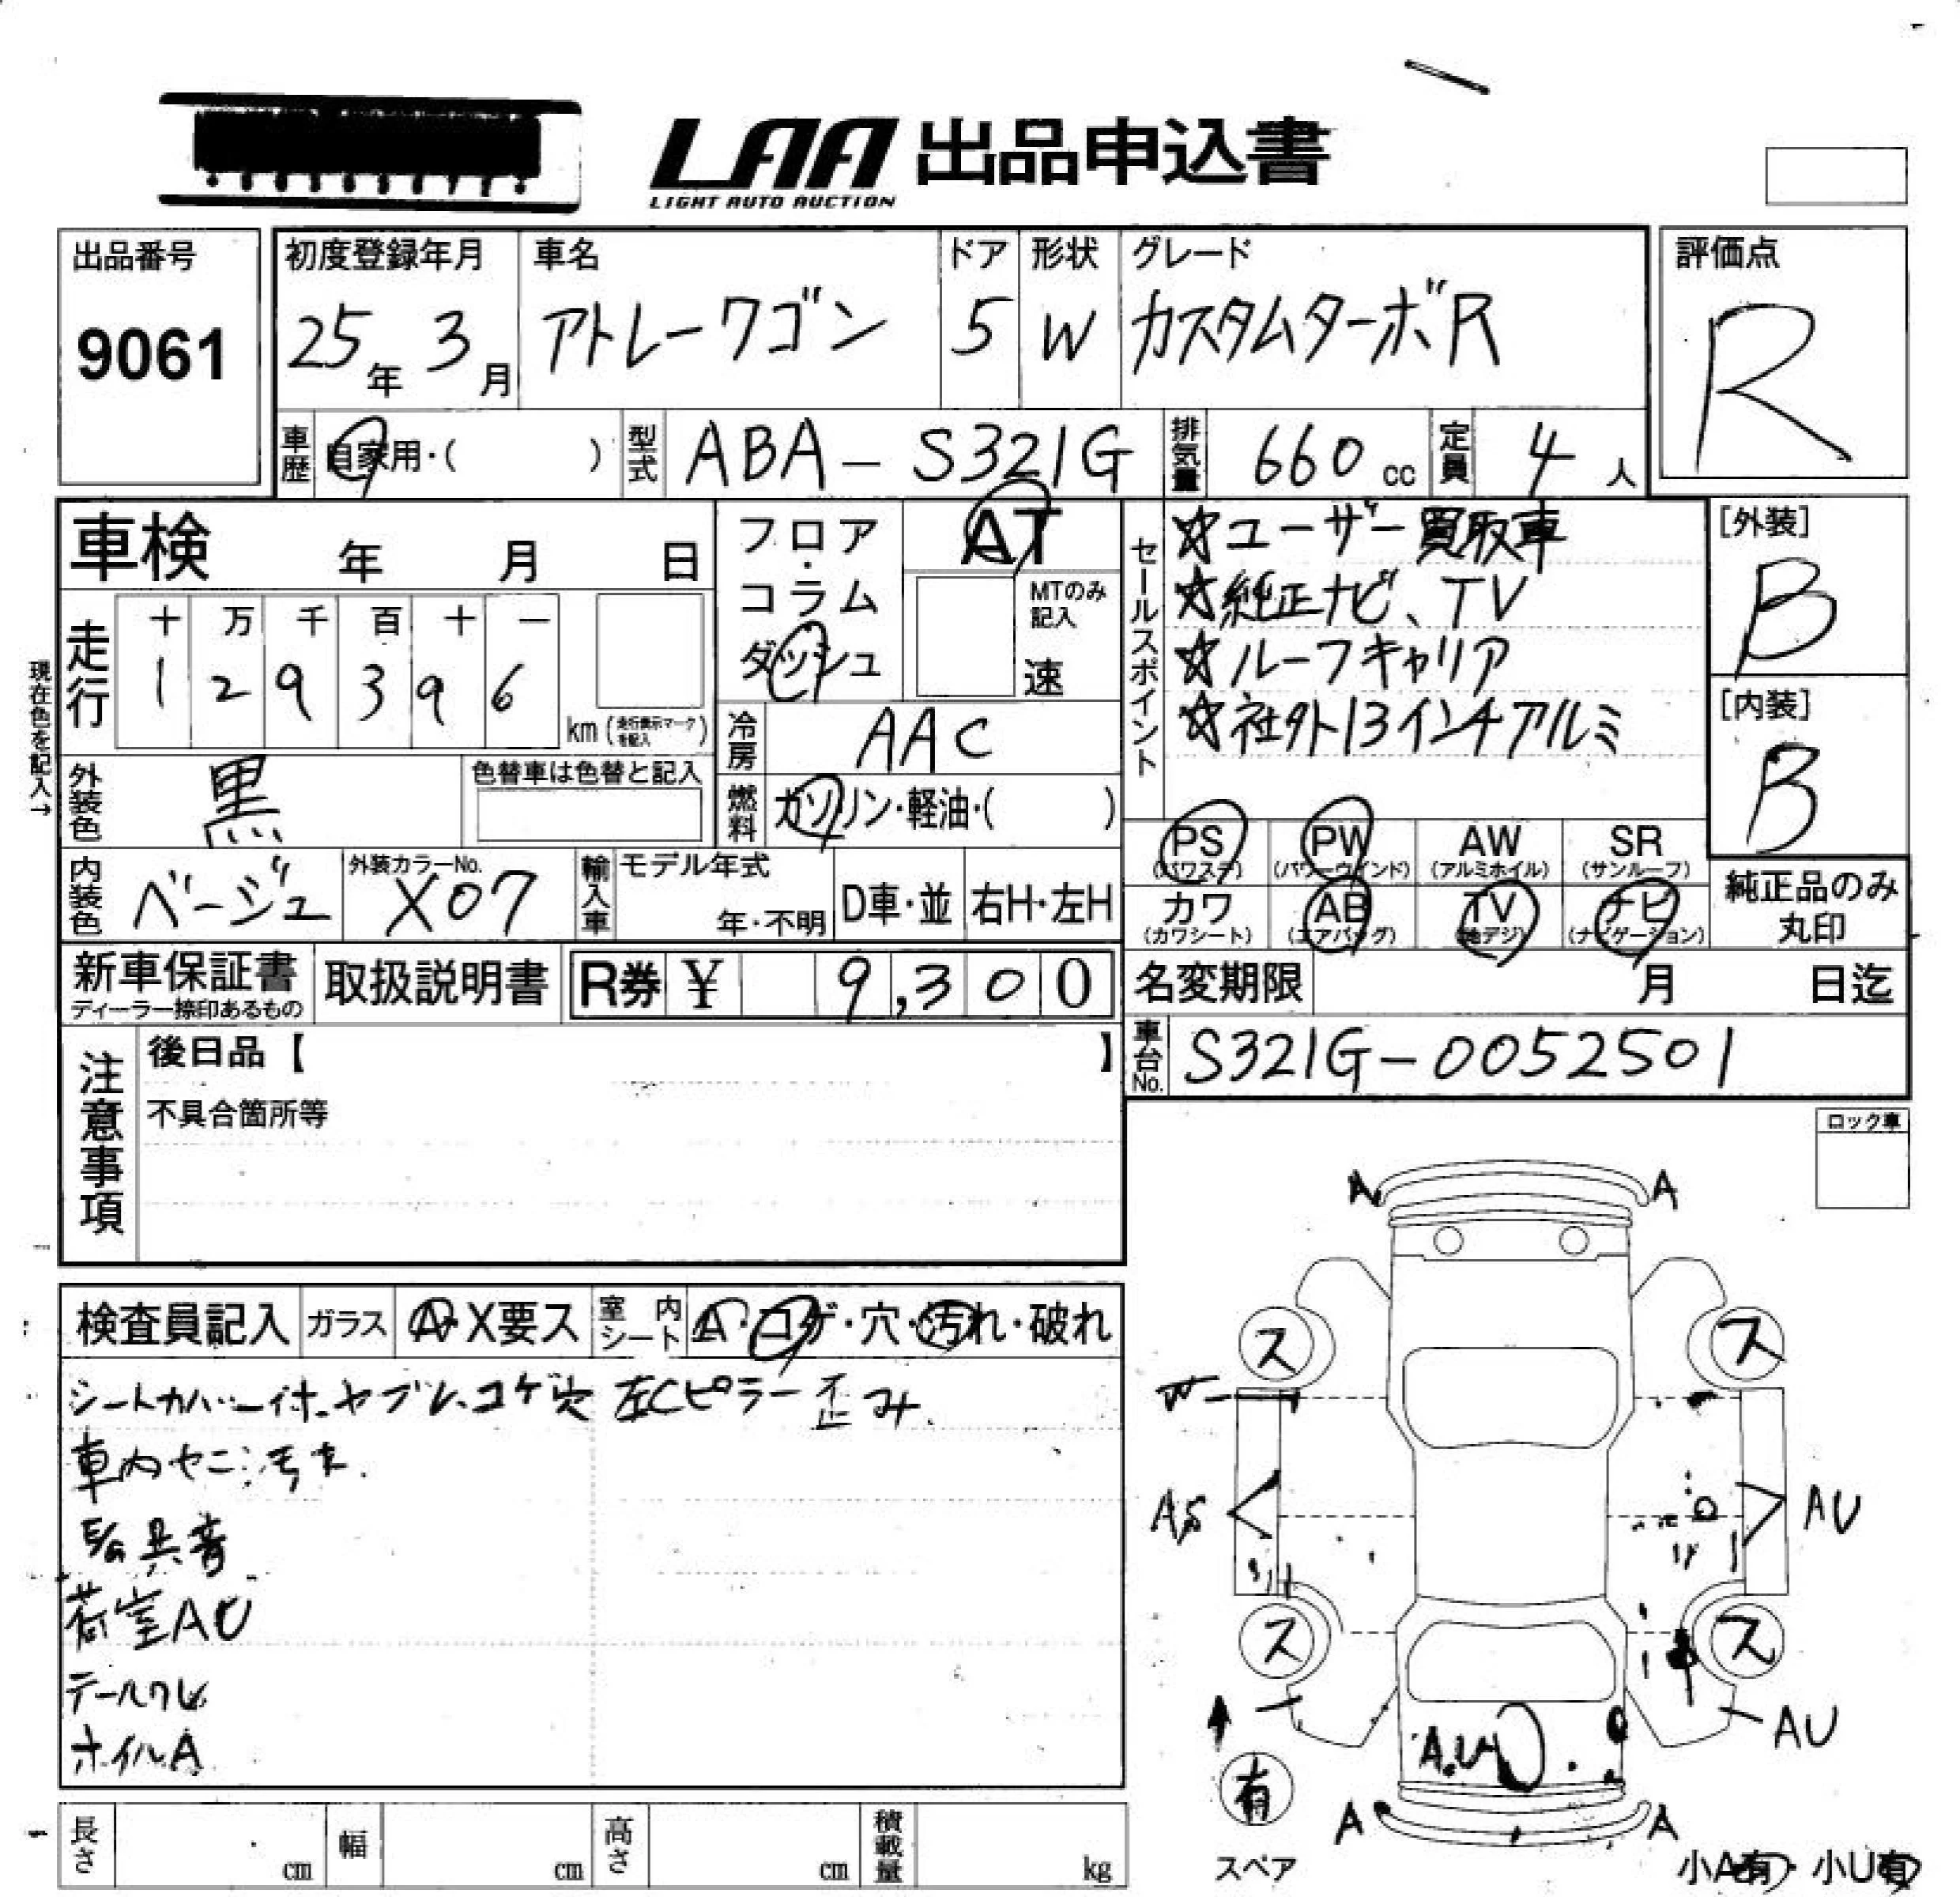 LAA 出品申込書
LIGHT AUTO AUCTION
出品番号
9061
初度登録年月
25年 3月
車名
アトレーワゴン
ドア
5
形状
W
グレード
カスタムターボR
評価点
R
車歴 自家用・( )
型式 ABA-S321G
排気量 660 cc
定員 4 人
車検 年 月 日
フロア・コラム
ダッシュ
AT
MTのみ記入
速
セールスポイント
☆ユーザー買取車
☆純正ナビ、TV
☆ルーフキャリア
☆社外13インチアルミ
[外装]
B
[内装]
B
現在色を記入→
走行
十 万 千 百 十 一
1 2 9 3 9 6
km (走行表示マークを記入)
冷房 AAC
燃料 ガソリン・軽油・( )
外装色 黒
色替車は色替と記入
内装色 ベージュ
外装カラーNo.
X07
輸入車 モデル年式
年・不明
D車・並
右H・左H
PS (パワステ)
PW (パワーウインド)
AW (アルミホイル)
SR (サンルーフ)
カワ (カワシート)
AB (エアバッグ)
TV (地デジ)
ナビ (ナビゲーション)
純正品のみ丸印
新車保証書
ディーラー捺印あるもの
取扱説明書
R券 ¥ 9,300
名変期限 月 日迄
車台No. S321G-0052501
注意事項
後日品【 】
不具合箇所等
ロック車
検査員記入
ガラス A・X要ス
室内シート A・コゲ・穴・汚れ・破れ
シートカバー付 ヤブレ、コゲ穴 左Cピラー歪み.
車内ヤニ汚れ.
E/G異音
荷室AU
テールワレ
ホイルA
A A
ス ス
W
AS AU
ス ス
AU
A.U
有
スペア
A A
小A有・小U有
長さ cm
幅 cm
高さ cm
積載量 kg